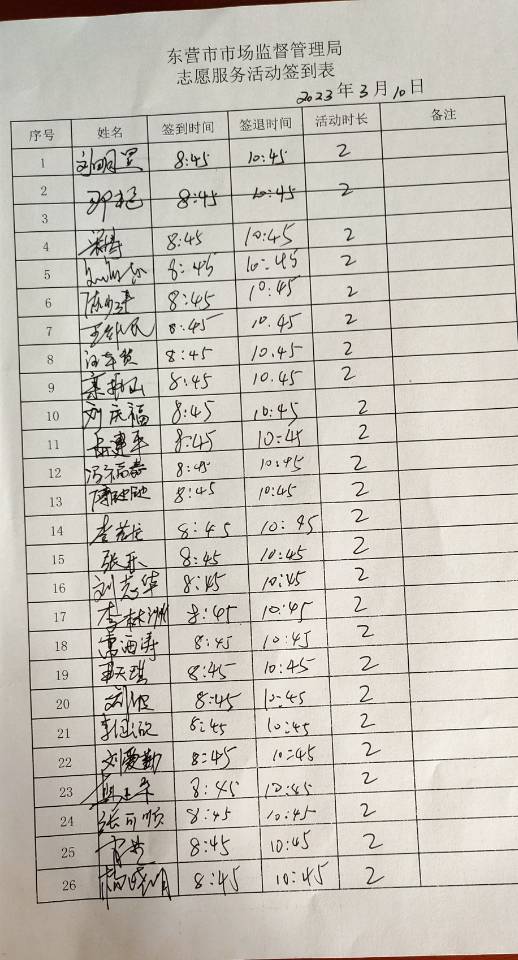 东营市市场监督管理局
志愿服务活动签到表
2023年3月10日
序号 姓名 签到时间 签退时间 活动时长 备注
1 8:45 10:45 2
2 8:45 10:45 2
3
4 8:45 10:45 2
5 8:45 10:45 2
6 8:45 10:45 2
7 8:45 10.45 2
8 8:45 10.45 2
9 8:45 10.45 2
10 刘庆福 8:45 10:45 2
11 8:45 10:45 2
12 8:45 10:45 2
13 8:45 10:45 2
14 8:45 10:45 2
15 张乐 8:45 10:45 2
16 刘志华 8:45 10:45 2
17 李林洲 8:45 10:45 2
18 8:45 10:45 2
19 8:45 10:45 2
20 8:45 10:45 2
21 8:45 10:45 2
22 刘爱勤 8:45 10:45 2
23 8:45 10:45 2
24 张可顺 8:45 10:45 2
25 8:45 10:45 2
26 8:45 10:45 2